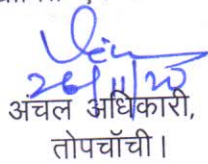 26/11/20
अंचल अधिकारी,
तोपचाँची।